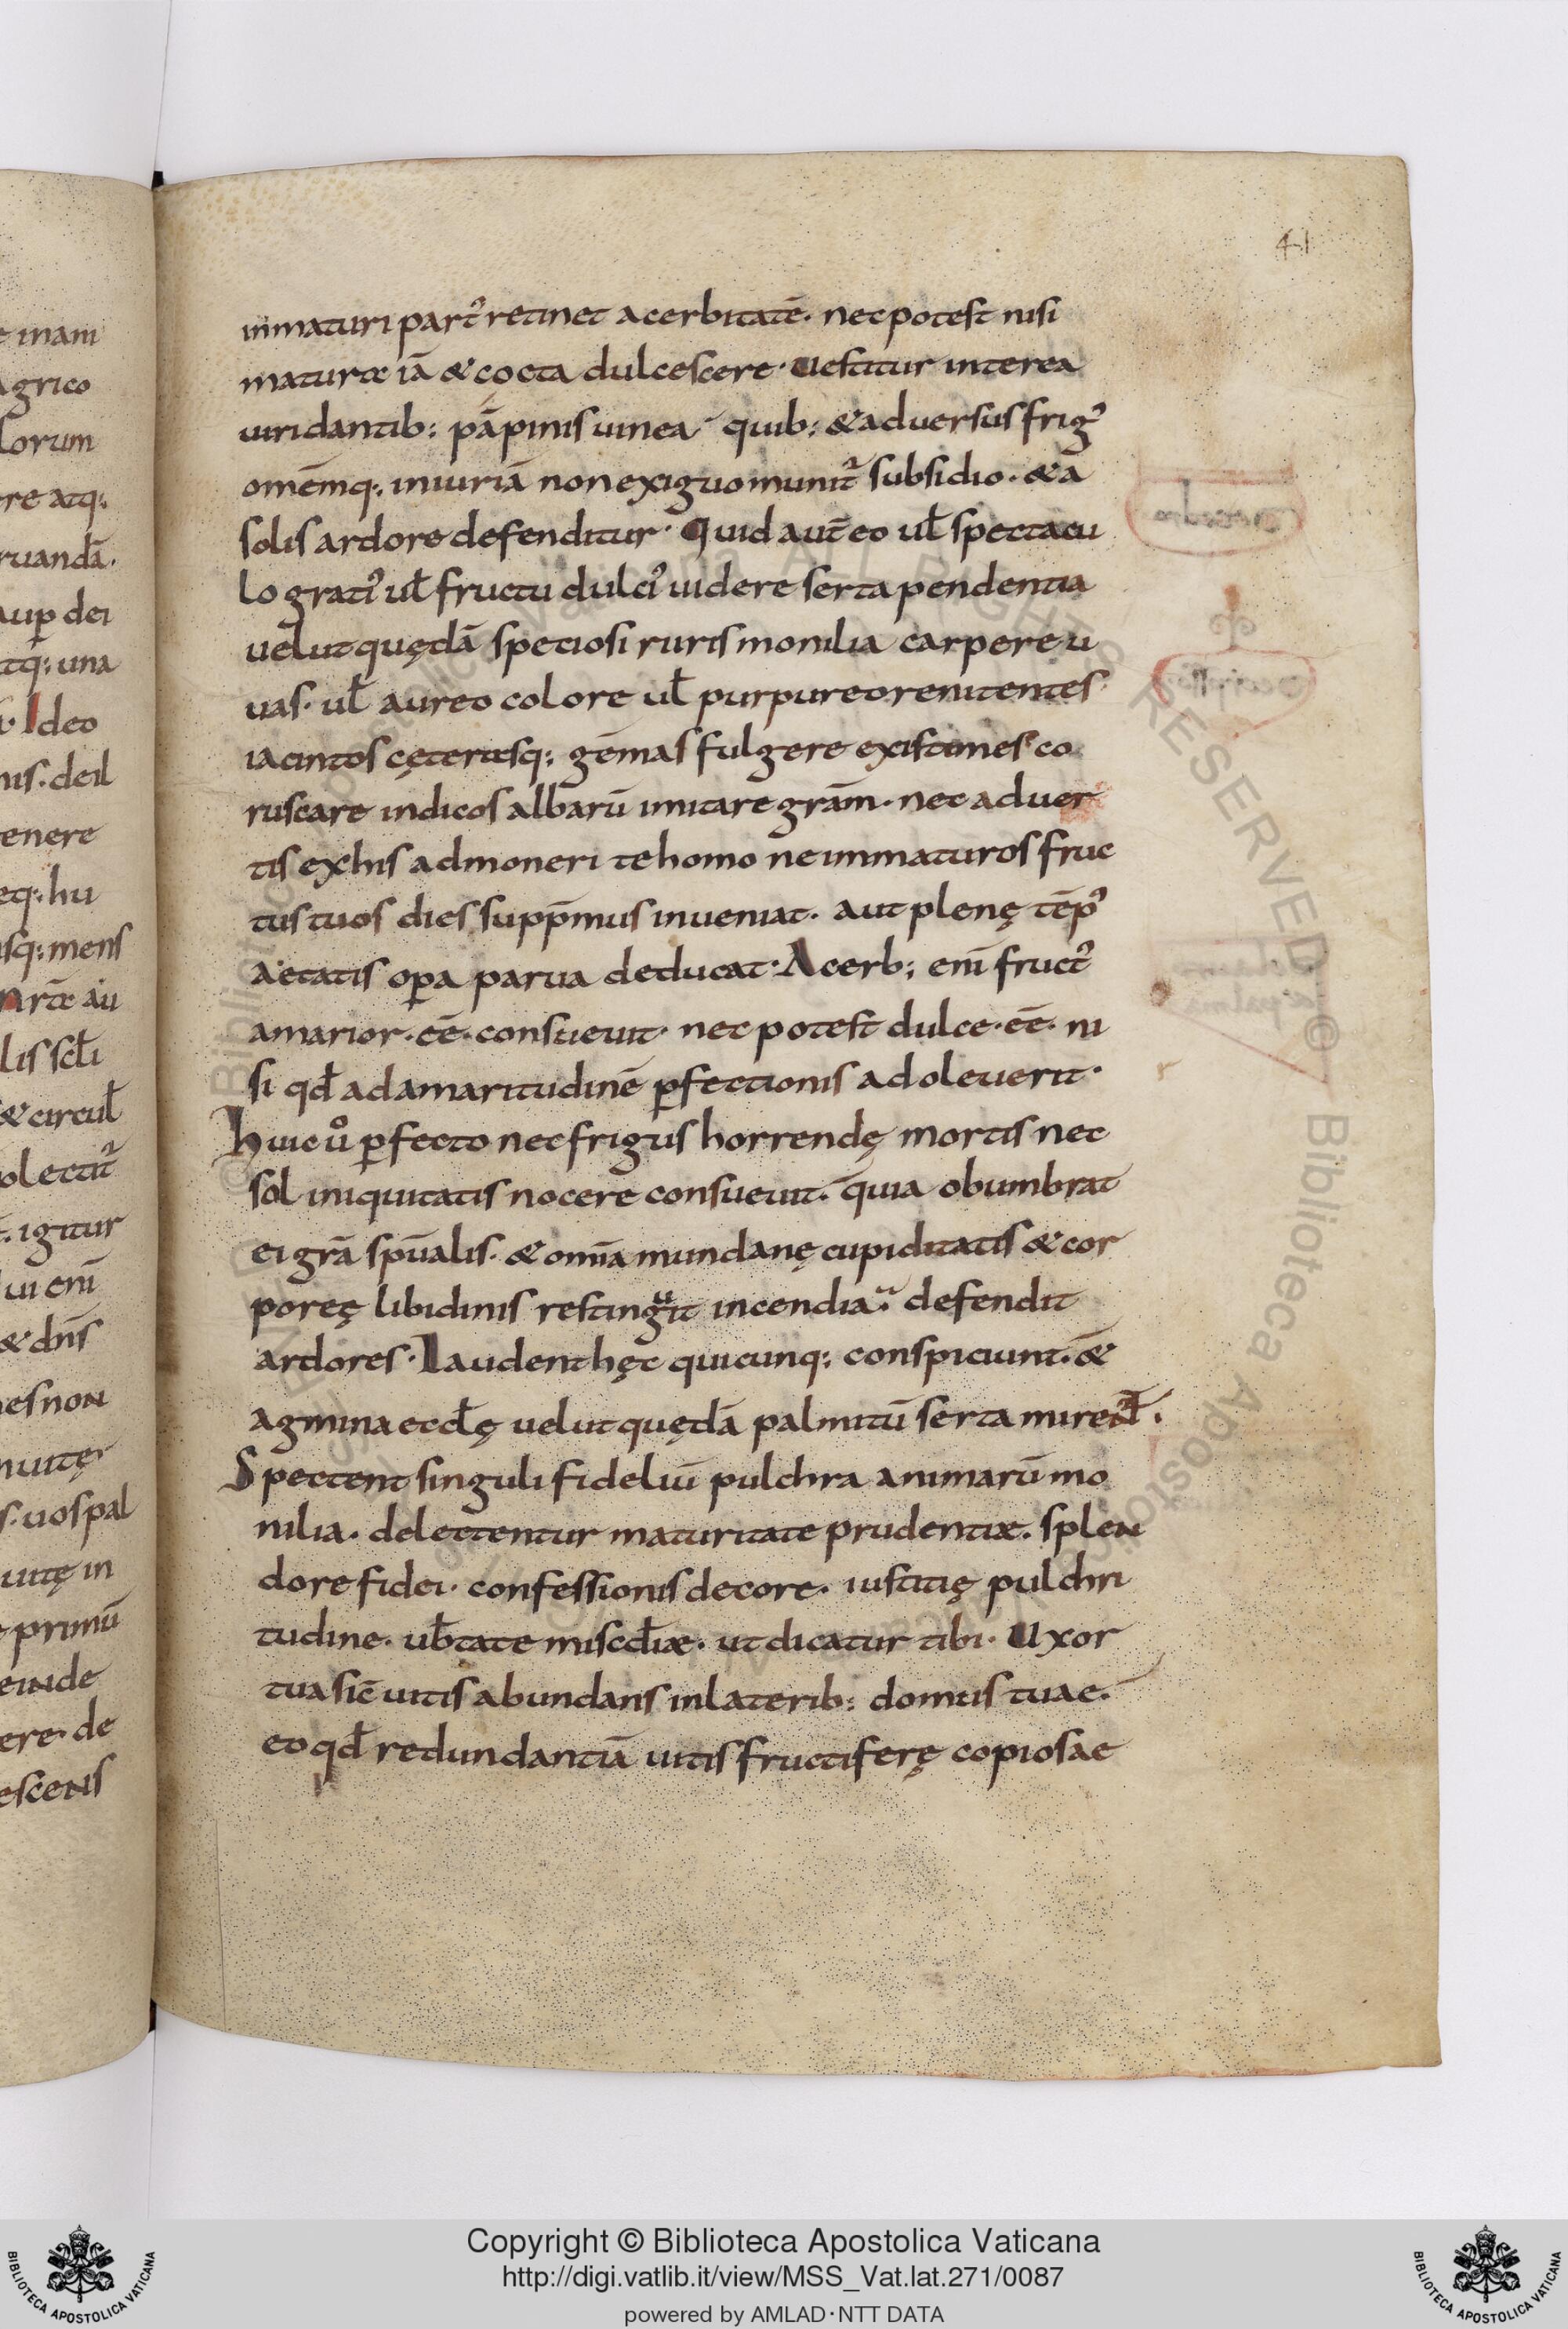 41
inmaturi part᾽ retinet acerbitatē. nec potest nisi
maturæ iā & cocta dulcescere. Uestitur interea
uiridantib; pāpinis uinea quib; & aduersus frig᾽
omēmq; iniuriā non exiguo munit᾽ subsidio. & a
solis ardore defenditur. Quid aut̄ eo ul̄ spectacu
lo grati᾽ ul̄ fructu dulci᾽ uidere serta pendentia
uelut quędā speciosi ruris monilia carpere u
uas. ul̄ aureo colore ul̄ purpureo renitentes
iacintos cęterasq; gēmas fulgere existimes co
ruscare indicos albarū imitare grām. nec aduer
tis ex his admoneri te homo ne inmaturos fruc
tus tuos dies supp̄mus inueniat. aut plenę tēp᾽
aetatis oꝑa parua deducat. Acerb; eni̅ fruct᾽
amarior. ēē. consueuit. nec potest dulce. ēē. ni
si qd̄ ad amaritudinē ꝑfectionis adoleuerit.
huic uº ꝑfecto nec frigus horrendę mortis nec
sol iniquitatis nocere consueuit. quia obumbrat
ei grā spūalis. & om̄ia mundanę cupiditatis & cor
poreę libidinis restingit incendia. defendit
ardores. Laudent hęc quicunq; conspiciunt. &
agmina eccl̄ę uelut quędā palmitū serta
Spectent singuli fideliū pulchra animarū mo
nilia. delectentur maturitate prudentiæ. splen
dore fidei. confessionis decore. iustitię pulchri
tudine. ub̄tate miscd̄iæ. ut dicatur tibi. Uxor
tua sic̄ uitis abundans in laterib; domus tuae.
eo qd̄ redundantiā uitis fructiferę copiosae
Copyright © Biblioteca Apostolica Vaticana
http://digi.vatlib.it/view/MSS_Vat.lat.271/0087
powered by AMLAD·NTT DATA
BIBLIOTECA APOSTOLICA VATICANA
BIBLIOTECA APOSTOLICA VATICANA